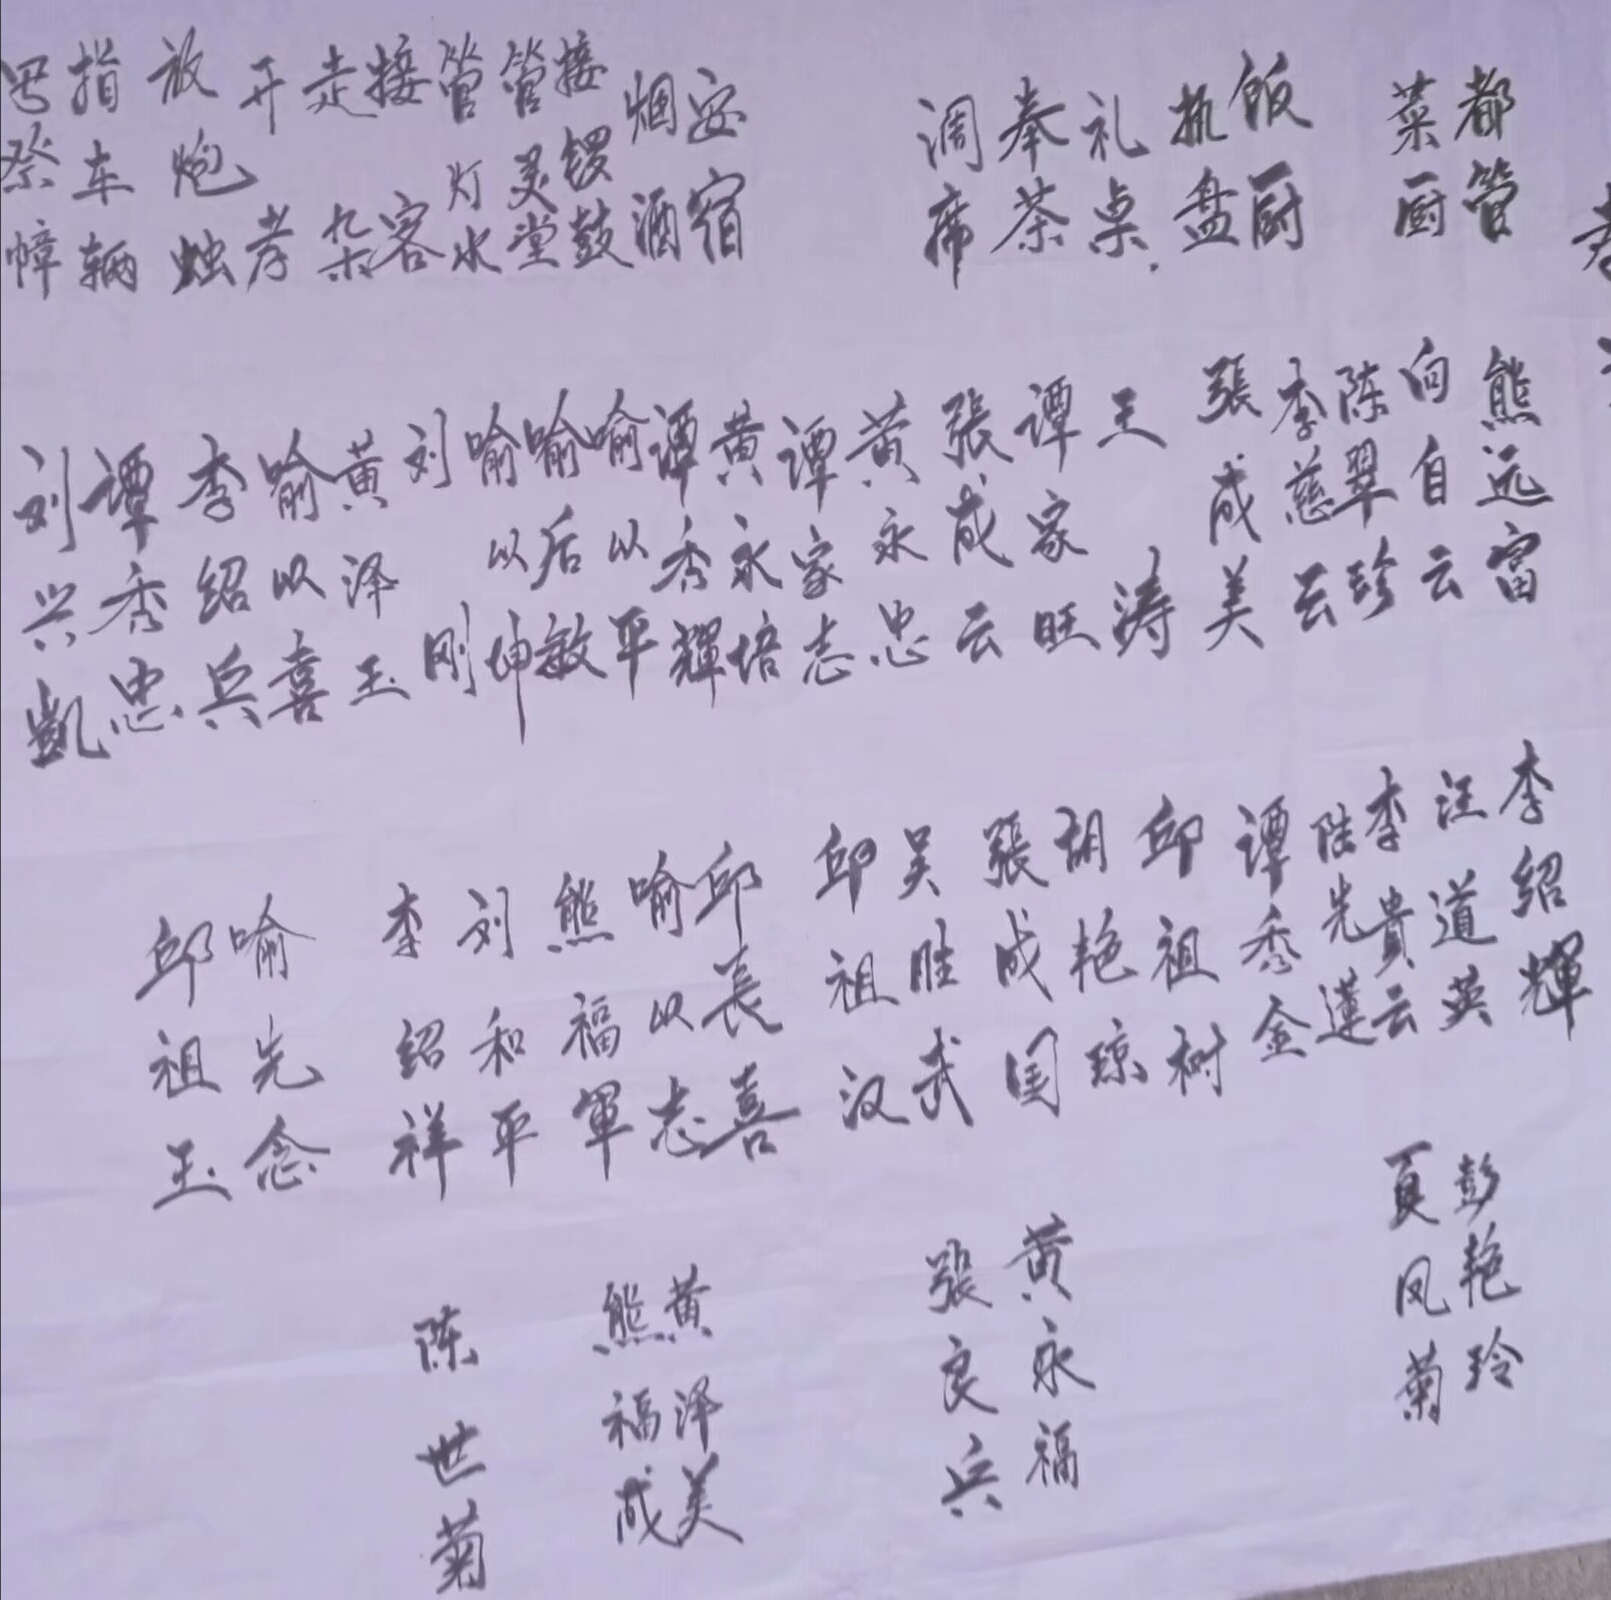 都管
菜厨
饭厨
抬盘
礼桌
奉茶
调席
安宿
烟酒
接锣鼓
管灵堂
管灯水
接客
走杂
开孝
放炮烛
指车辆
号祭幛
熊远富
向自云
陈翠珍
李慈云
張成美
王涛
谭家旺
張成云
黄永忠
谭家志
黄永培
谭秀輝
喻以平
喻后敏
喻以坤
刘刚
黄泽玉
喻以喜
李绍兵
谭秀忠
刘兴凱
李绍輝
汪道英
李貴云
陆先蓮
谭秀金
邱祖树
胡艳琼
張成国
吴胜武
邱祖汉
邱長喜
喻以志
熊福軍
刘和平
李绍祥
喻先念
邱祖玉
彭艳玲
夏凤菊
黄永福
張良兵
黄泽美
熊福成
陈世菊